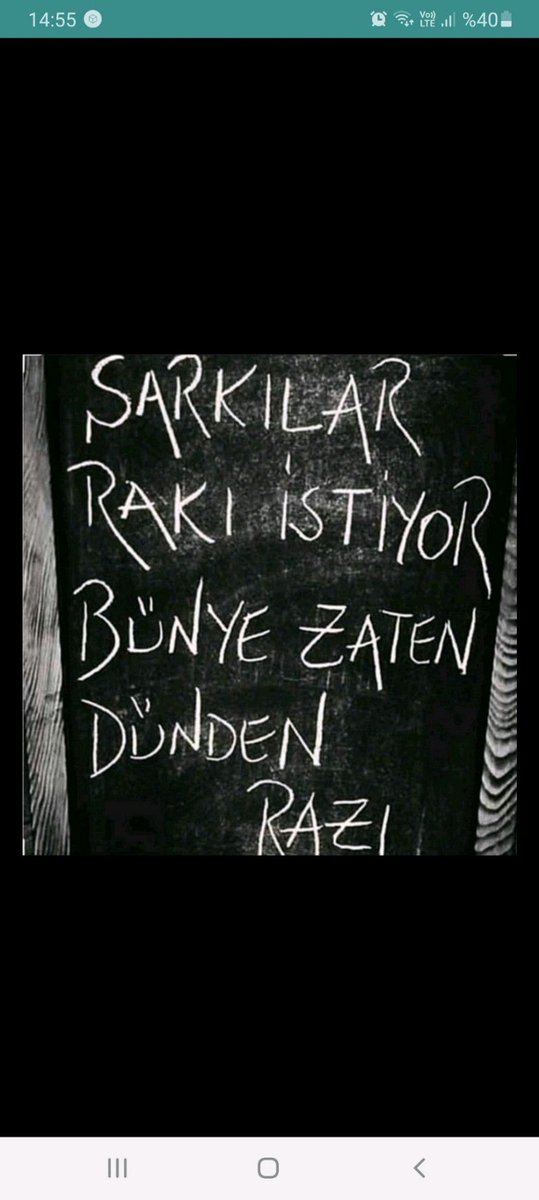 14:55
Vo))
LTE
%40
ŞARKILAR
RAKI İSTİYOR
BÜNYE ZATEN
DÜNDEN
RAZI